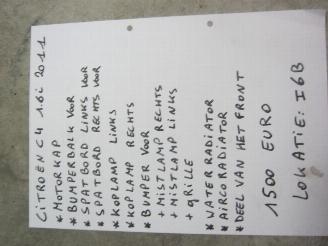 CITROËN C4 1.6i 2011
* MOTORKAP
* BUMPERBALK VOOR
* SPATBORD LINKS VOOR
* SPATBORD RECHTS VOOR
* KOPLAMP LINKS
* KOPLAMP RECHTS
* BUMPER VOOR
+ MISTLAMP RECHTS
+ MISTLAMP LINKS
+ GRILLE
* WATERRADIATOR
* AIRCORADIATOR
* DEEL VAN HET FRONT
1500 EURO
LOKATIE: I6B